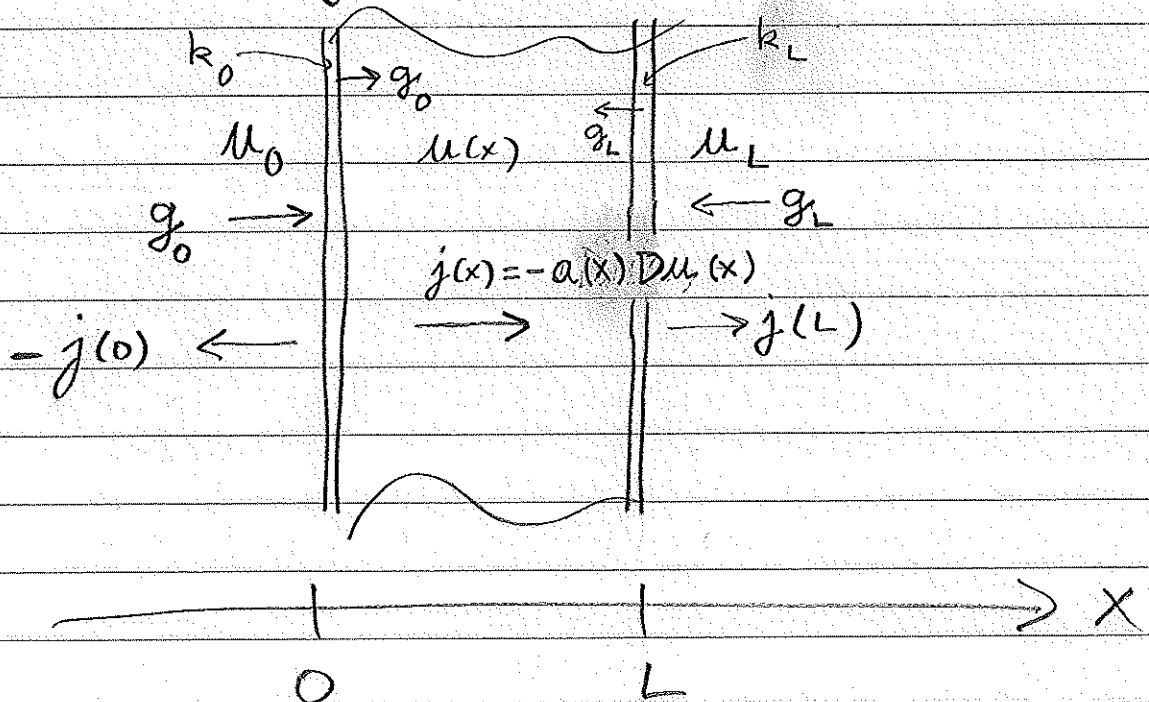 k₀ → g₀ k_L
u₀ u(x) g_L ← u_L
g₀ → ← g_L
j(x) = -a(x) Du(x)
-j(0) ← → → j(L)
x
0 L